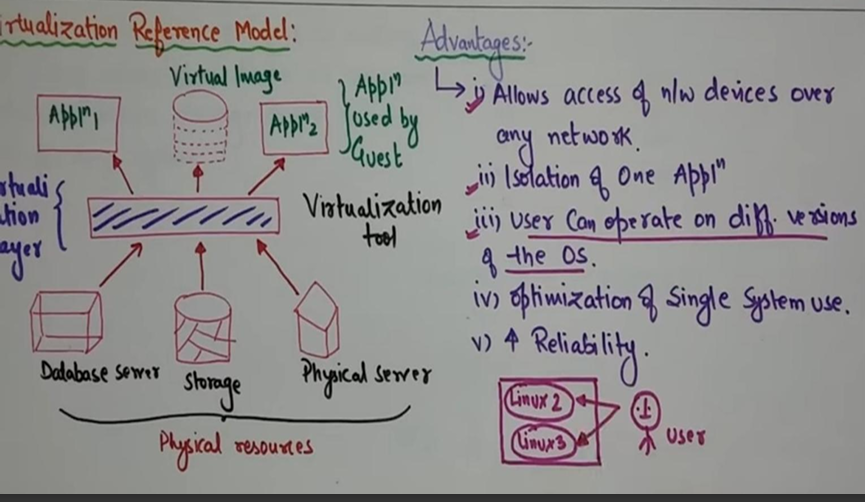 rtualization Reference Model:
Virtual Image
Applⁿ1
Applⁿ2
Applⁿ
used by
Guest
rtuali
tion
ayer
Virtualization
tool
Database server
Storage
Physical server
Physical resources
Advantages:-
i) Allows access of n/w devices over
any network.
ii) Isolation of One Applⁿ
iii) User Can operate on diff. versions
of the OS.
iv) Optimization of Single System use.
v) ↑ Reliability.
Linux 2
Linux3
User